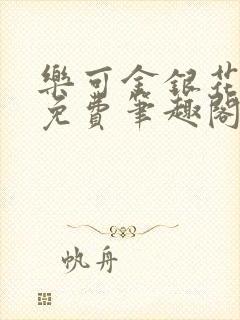 樂可金銀花
免費筆趣閣
帆舟